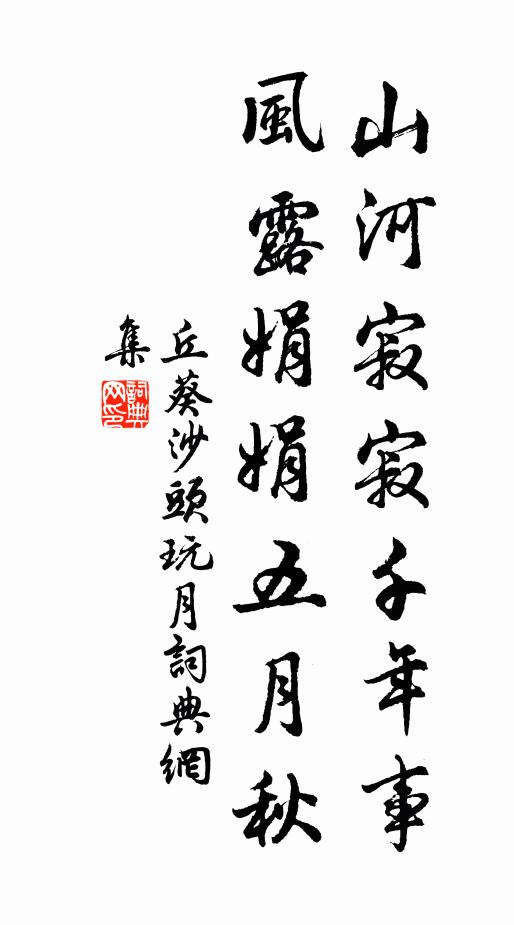 山河寂寂千年事
風露娟娟五月秋
丘葵沙頭玩月詞典網
集
詞典网印